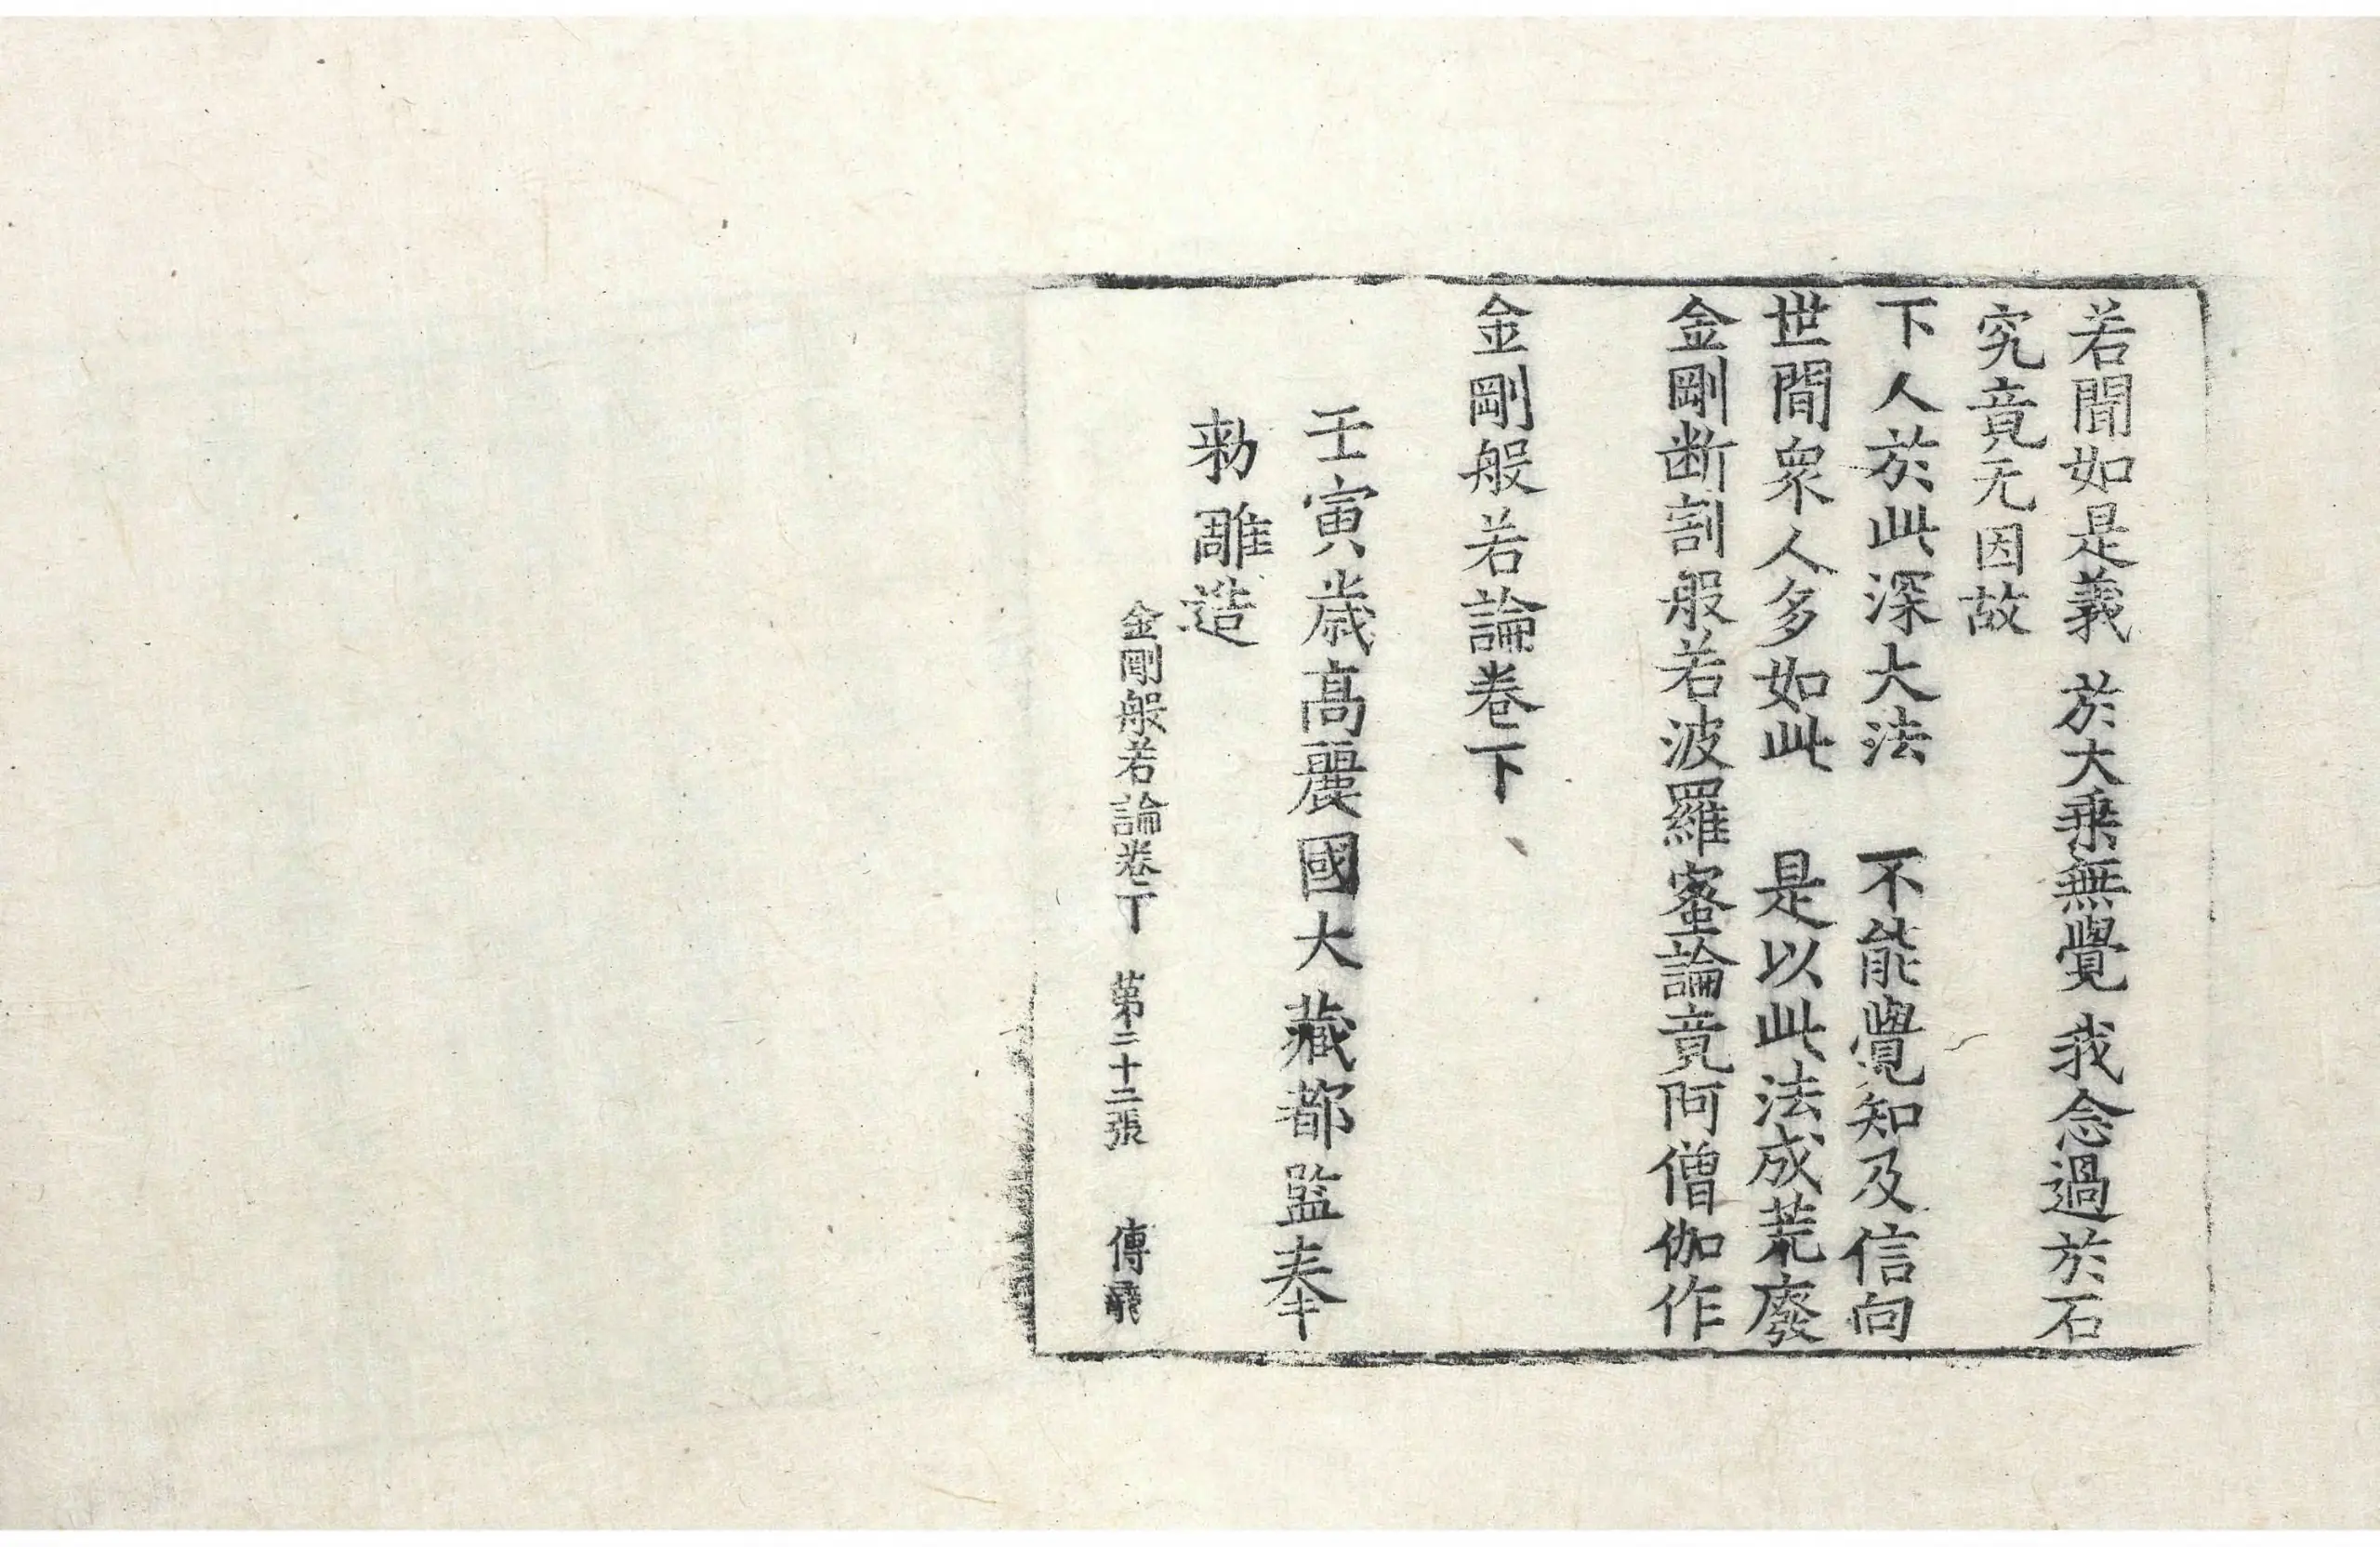 若聞如是義 於大乗無覺 我念過於石
究竟无因故
下人於此深大法 不能覺知及信向
世間衆人多如此 是以此法成荒廢
金剛断割般若波羅蜜論竟阿僧伽作
金剛般若論卷下
壬寅歲高麗國大藏都監奉
勑雕造
金剛般若論卷下 第二十二張 傳義